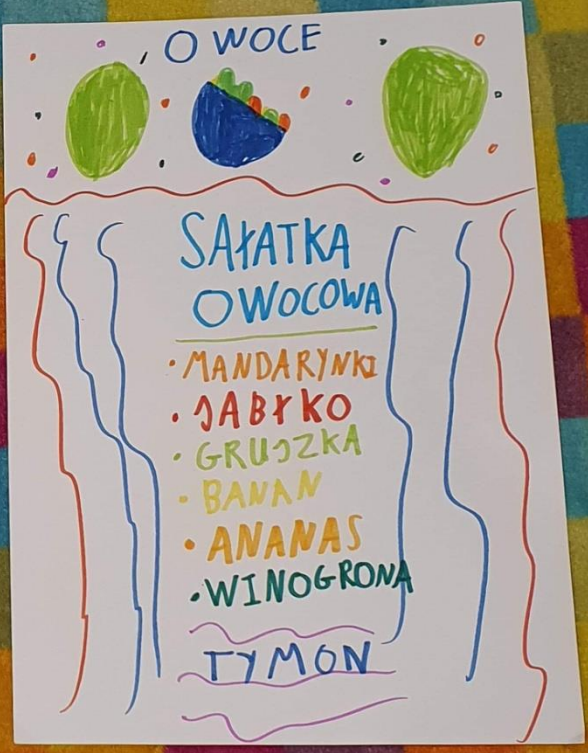 OWOCE
SAŁATKA
OWOCOWA
• MANDARYNKI
• JABŁKO
• GRUSZKA
• BANAN
• ANANAS
• WINOGRONA
TYMON